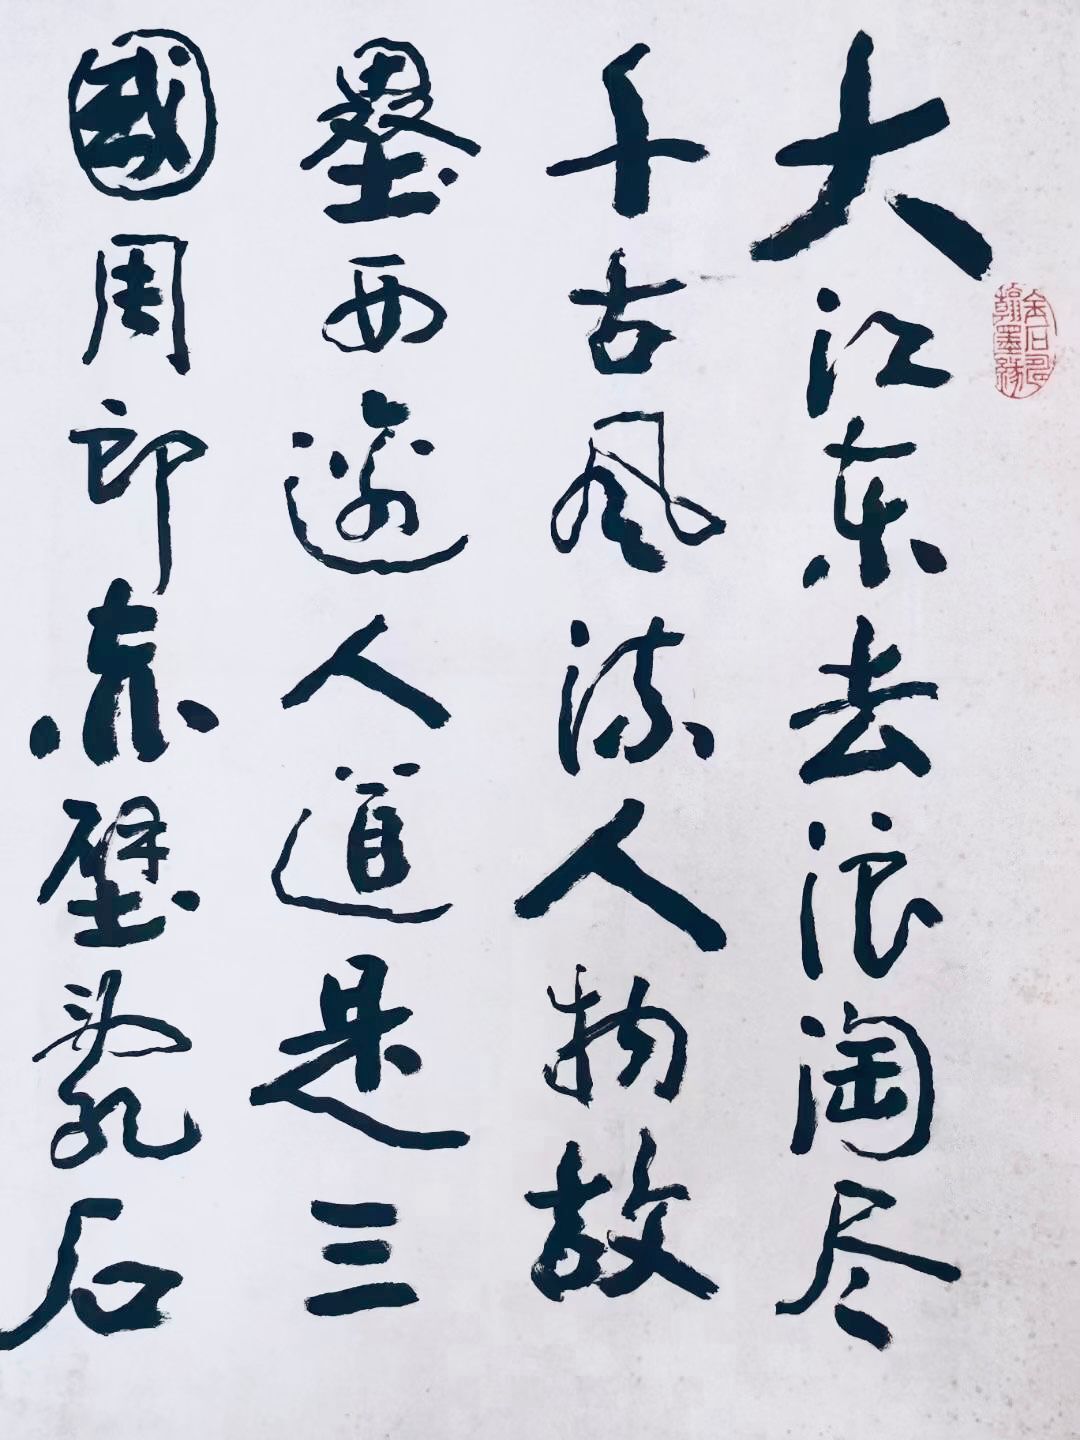 大江东去浪淘尽
千古风流人物故
垒西边人道是三
國周郎赤壁乱石
金石
翰墨缘